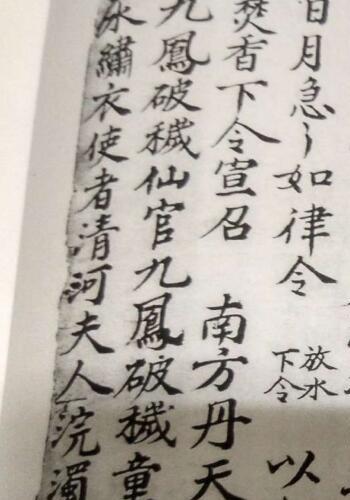 月急〻如律令
放水
下令
以
焚香下令宣召　南方丹天
九鳳破穢仙官九鳳破穢童
繡衣使者清河夫人浣濁